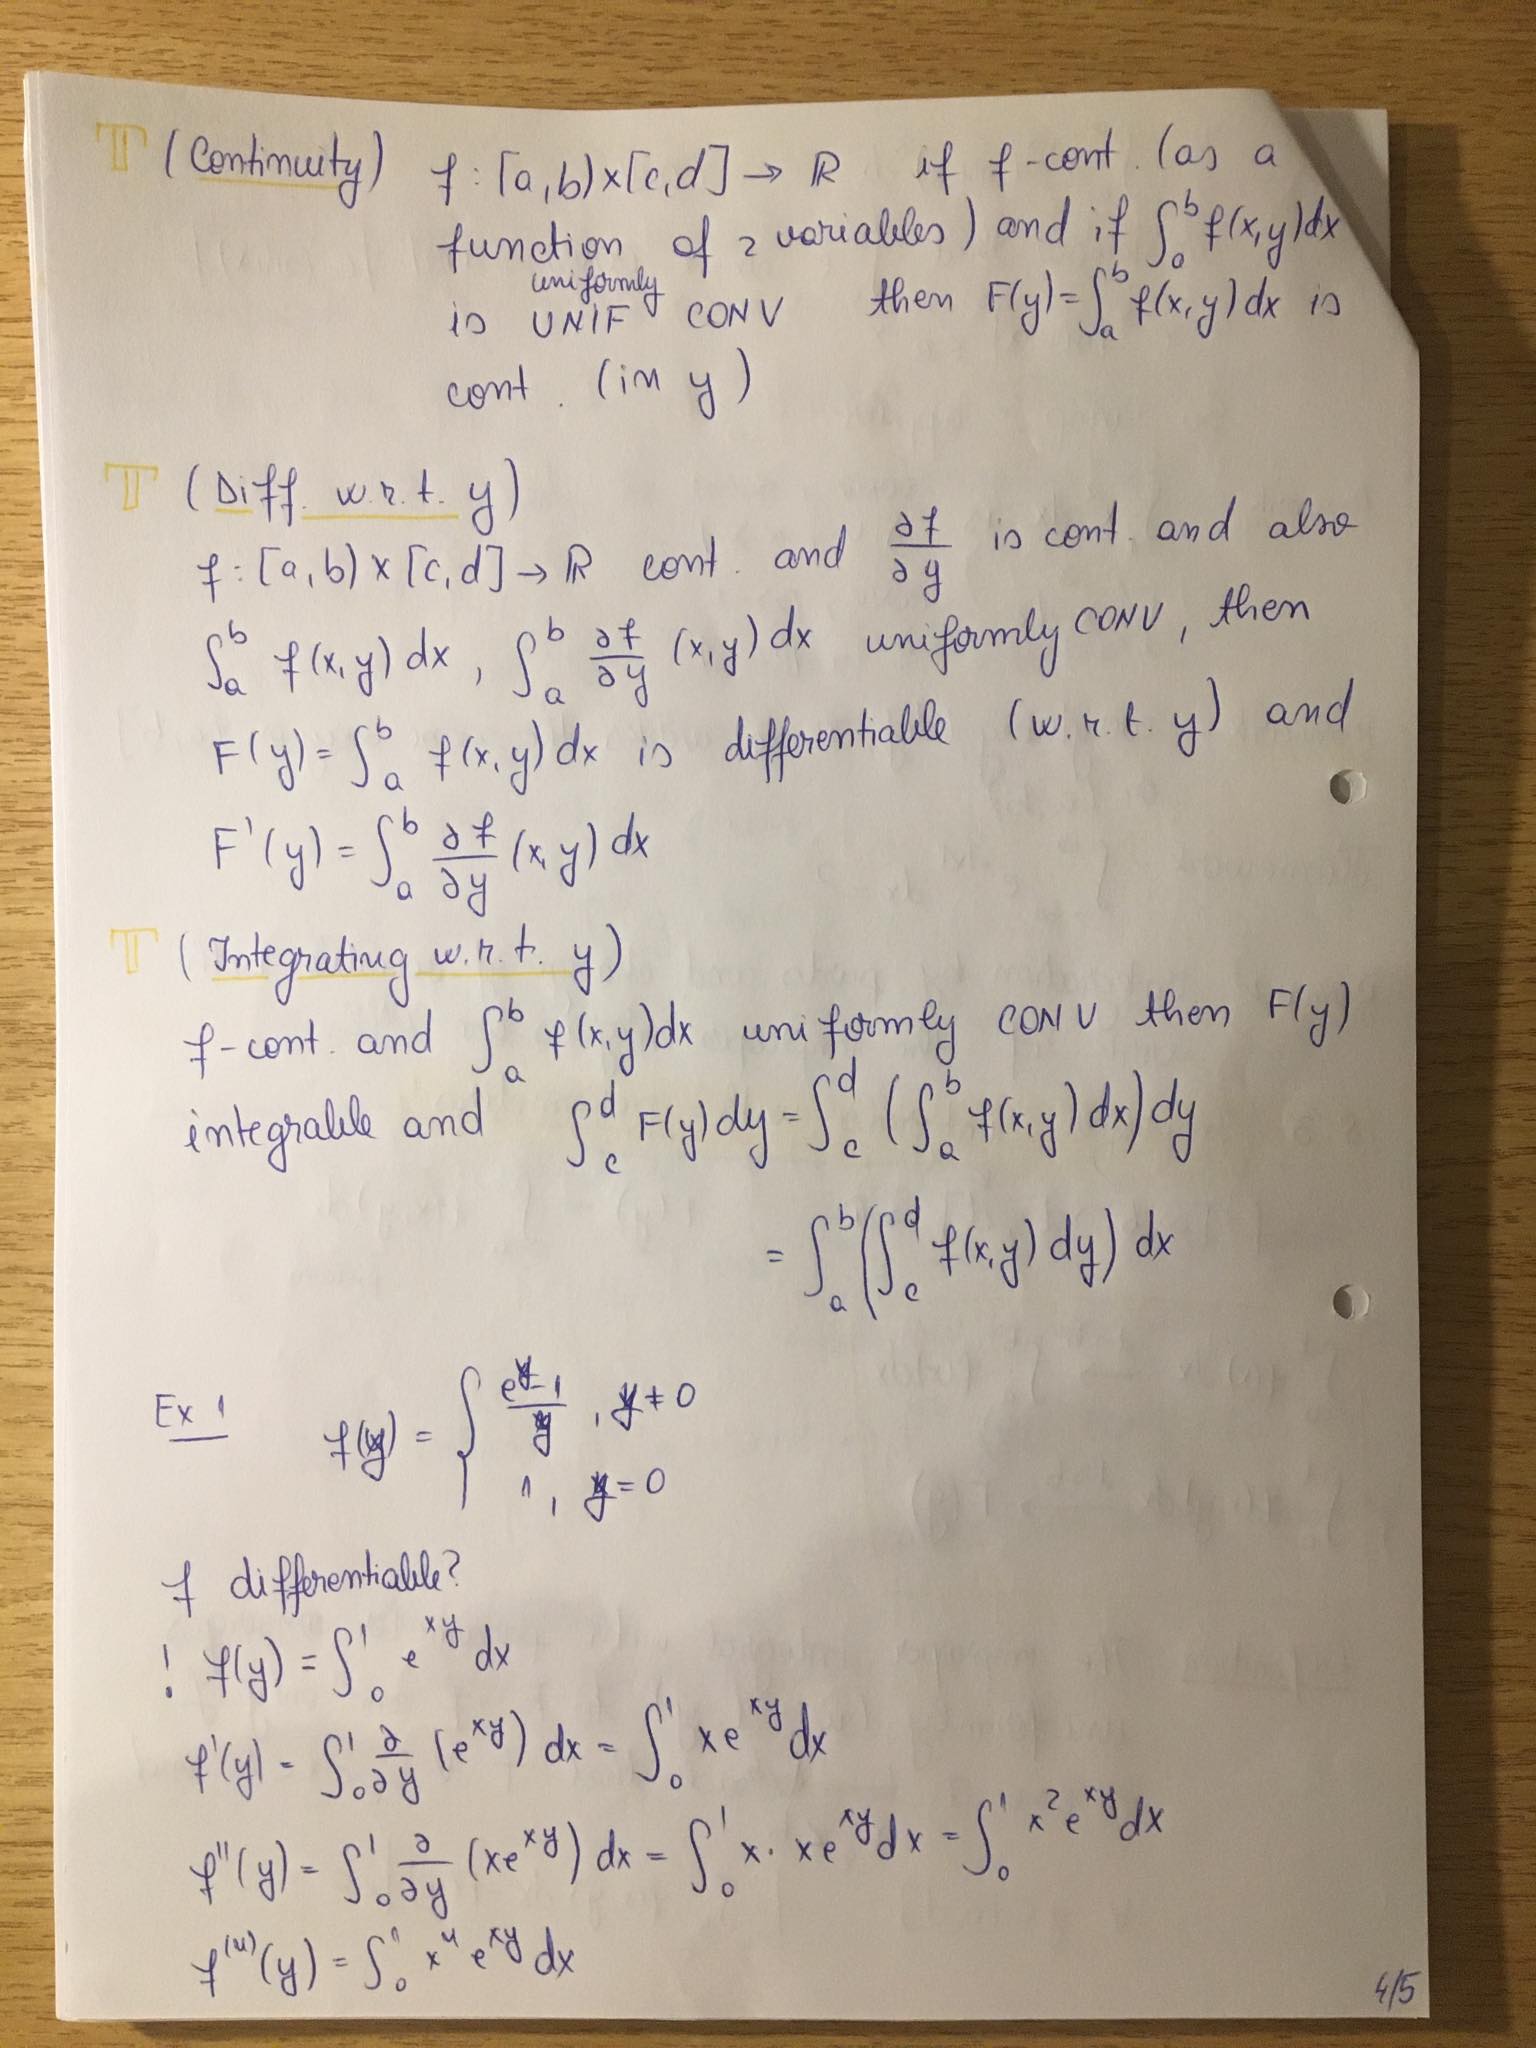 𝕋 (Continuity) f : [a,b) x [c,d] → ℝ if f-cont. (as a
function of 2 variables) and if ∫_a^b f(x,y)dx
uniformly
is UNIF CONV then F(y)=∫_a^b f(x,y)dx is
cont. (in y)
𝕋 (Diff. w.r.t. y)
f : [a,b) x [c,d] → ℝ cont. and ∂f/∂y is cont. and also
∫_a^b f(x,y) dx, ∫_a^b ∂f/∂y (x,y) dx uniformly CONV, then
F(y)=∫_a^b f(x,y) dx is differentiable (w.r.t. y) and
F'(y)=∫_a^b ∂f/∂y (x,y) dx
𝕋 (Integrating w.r.t. y)
f-cont. and ∫_a^b f(x,y)dx uniformly CONV then F(y)
integrable and ∫_c^d F(y)dy = ∫_c^d (∫_a^b f(x,y) dx) dy
= ∫_a^b (∫_c^d f(x,y) dy) dx
Ex 1 f(y) = { (e^y-1)/y , y≠0
1, y=0
f differentiable?
! f(y) = ∫_0^1 e^{xy} dx
f'(y) = ∫_0^1 ∂/∂y (e^{xy}) dx = ∫_0^1 xe^{xy} dx
f''(y) = ∫_0^1 ∂/∂y (xe^{xy}) dx = ∫_0^1 x · xe^{xy} dx = ∫_0^1 x^2 e^{xy} dx
f^{(n)}(y) = ∫_0^1 x^n e^{xy} dx
4/5